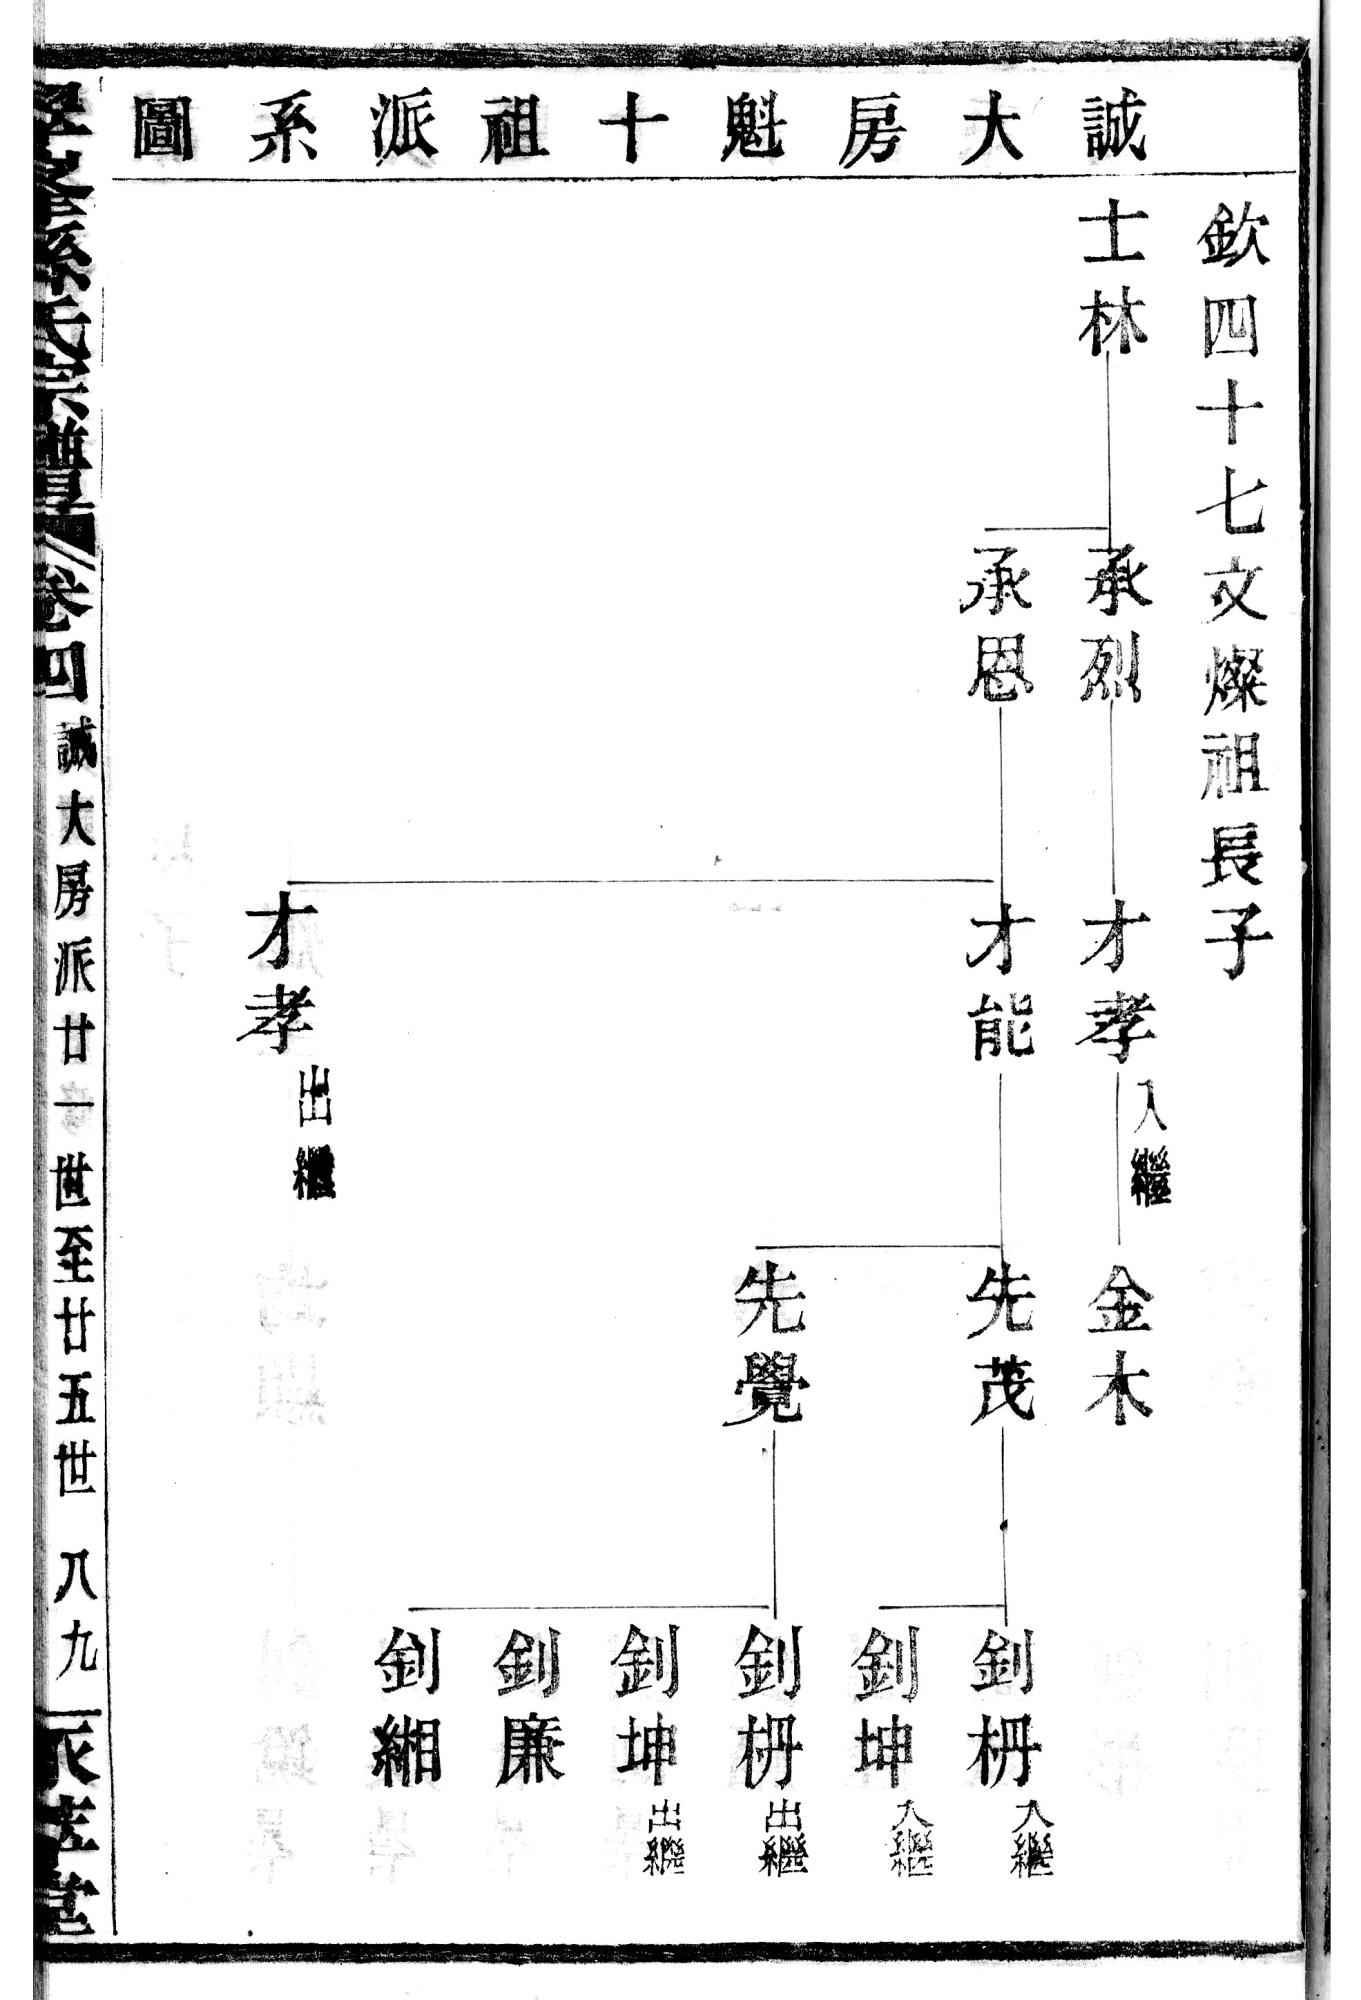 誠大房魁十祖派系圖
欽四十七文燦祖長子
士林
承烈
承恩
才孝 入繼
才能
才孝 出繼
金木
先茂
先覺
釗枬 入繼
釗坤 入繼
釗枬 出繼
釗坤 出繼
釗廉
釗緗
孫氏宗譜 卷四 誠大房派廿一世至廿五世 八九
堂